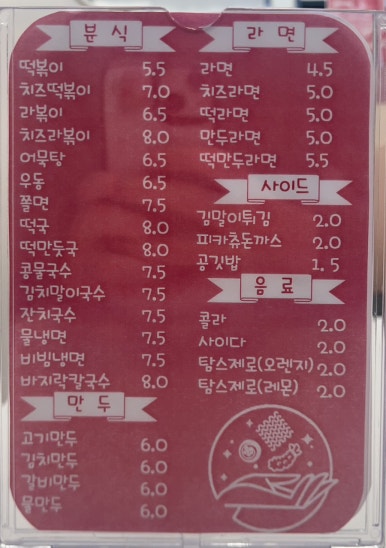 분식
떡볶이 5.5
치즈떡볶이 7.0
라볶이 6.5
치즈라볶이 8.0
어묵탕 6.5
우동 6.5
쫄면 7.5
떡국 8.0
떡만둣국 8.0
콩물국수 7.5
김치말이국수 7.5
잔치국수 7.5
물냉면 7.5
비빔냉면 7.5
바지락칼국수 8.0
만두
고기만두 6.0
김치만두 6.0
갈비만두 6.0
물만두 6.0
라면
라면 4.5
치즈라면 5.0
떡라면 5.0
만두라면 5.0
떡만두라면 5.5
사이드
김말이튀김 2.0
피카츄돈까스 2.0
공깃밥 1.5
음료
콜라 2.0
사이다 2.0
탐스제로(오렌지) 2.0
탐스제로(레몬) 2.0